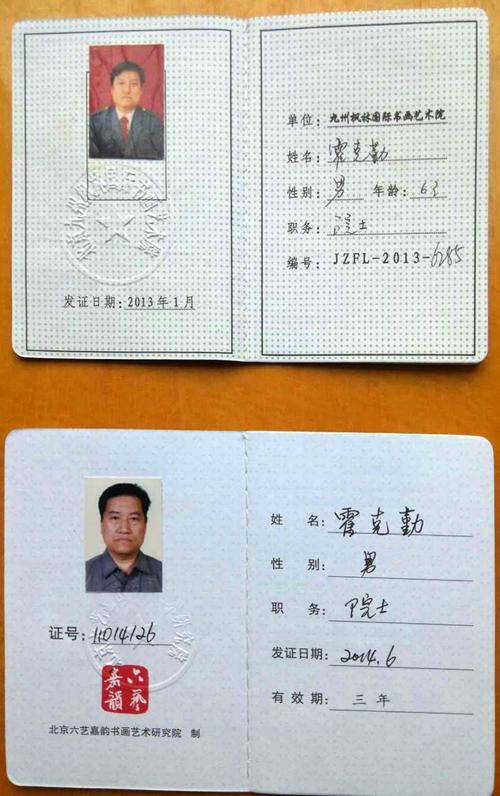 发证日期: 2013年1月
单位: 九州枫林国际书画艺术院
姓名: 霍克勤
性别: 男 年龄: 63
职务: 院士
编号: JZFL-2013-6285
证号: 11014126
六藝
嘉韻
北京六艺嘉韵书画艺术研究院 制
姓 名: 霍克勤
性 别: 男
职 务: 院士
发证日期: 2014.6
有效期: 三年